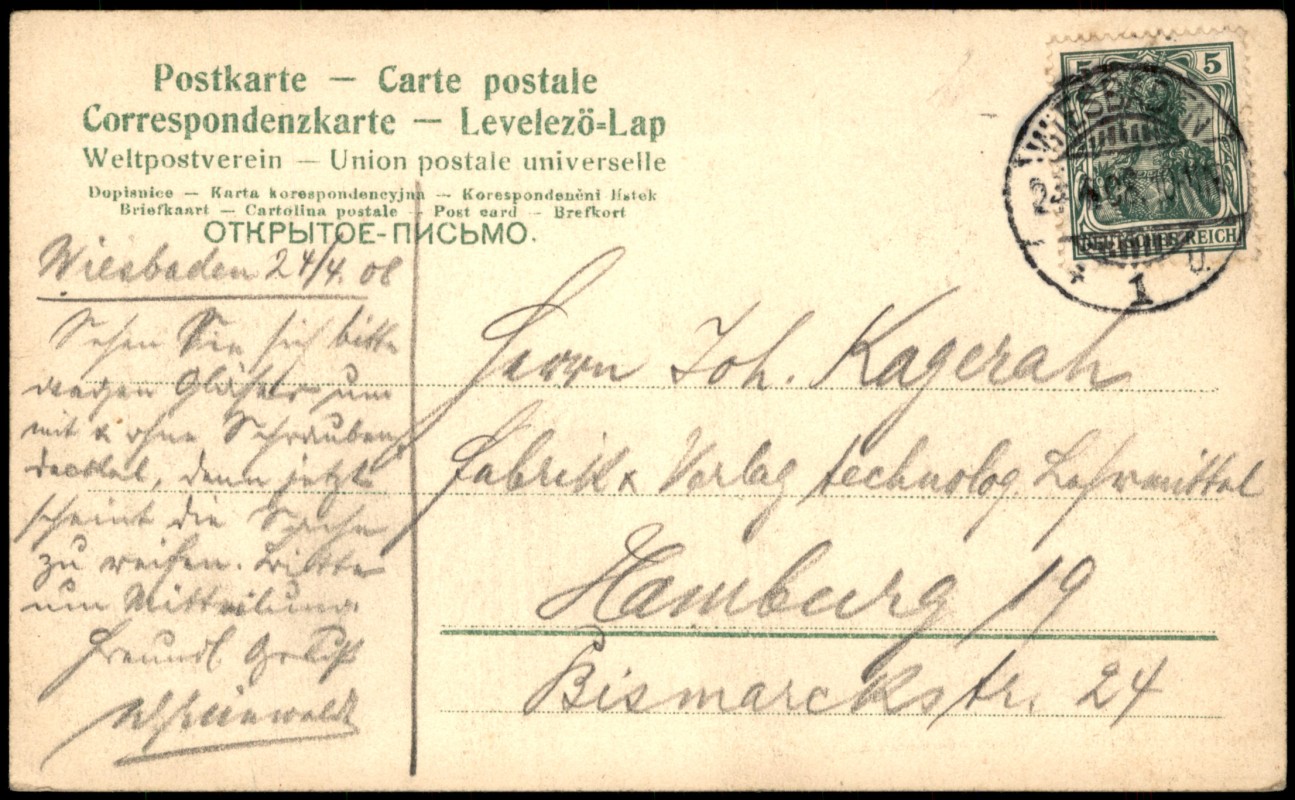 Postkarte — Carte postale
Correspondenzkarte — Levelező-Lap
Weltpostverein — Union postale universelle
Dopisnice — Karta korespondencyjna — Korespondenční lístek
Briefkaart — Cartolina postale — Post card — Brefkort
ОТКРЫТОЕ-ПИСЬМО.
5 5
WIESBADEN
DEUTSCHES REICH
1
Wiesbaden 24/4. 08
Sehen Sie sich bitte
wegen Gläser um
mit & ohne Schrauben
deckel, denn jetzt
scheint die Sache
zu reifen. Bitte
um Mitteilung
Freundl Gruß
Herrn Joh. Kagerah
Fabrik & Verlag technolog. Lehrmittel
Hamburg 19
Bismarckstr. 24